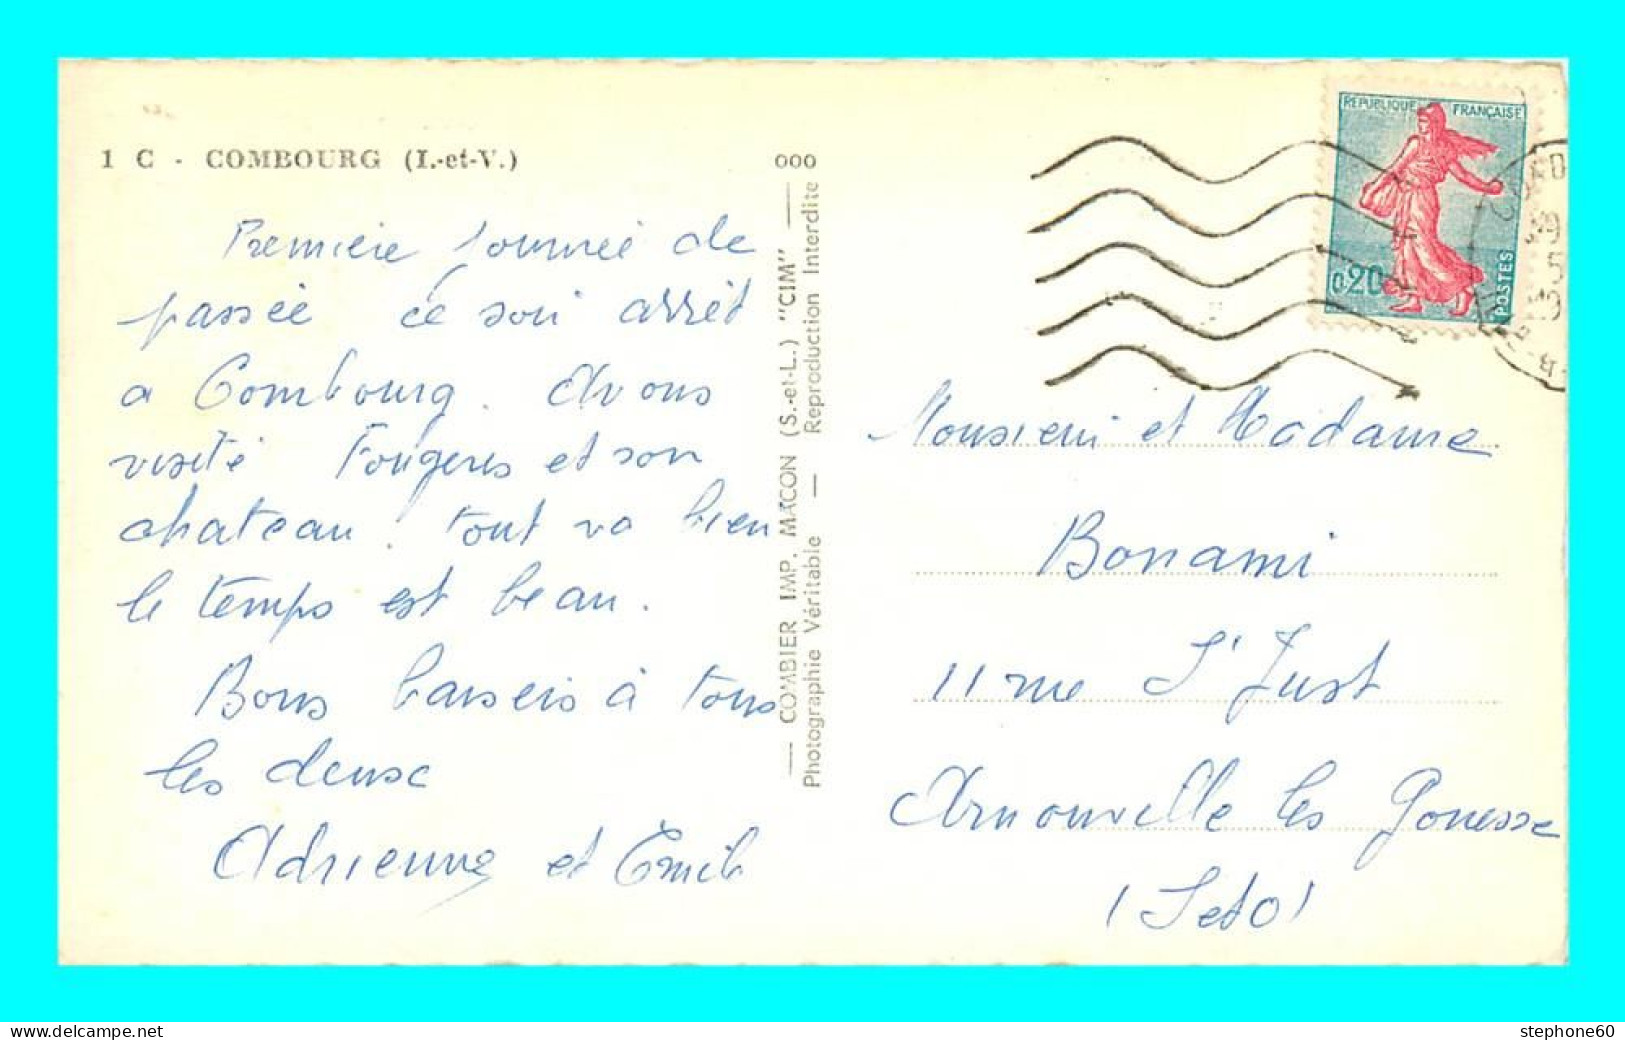 1 C - COMBOURG (I.-et-V.)
Première journée de
passée ce soir arrêt
a Combourg. Avons
visité Fougeres et son
chateau. tout va bien
le temps est beau.
Bons baisers à tous
les deux
Adrienne et Emile
ooo
— COMBIER IMP. MACON (S.-et-L.) "CIM" —
Photographie Véritable — Reproduction Interdite
REPUBLIQUE FRANÇAISE
0.20
POSTES
Monsieur et Madame
Bonami
11 rue St Just
Arnouville les Gonesse
(SetO)
www.delcampe.net
stephone60